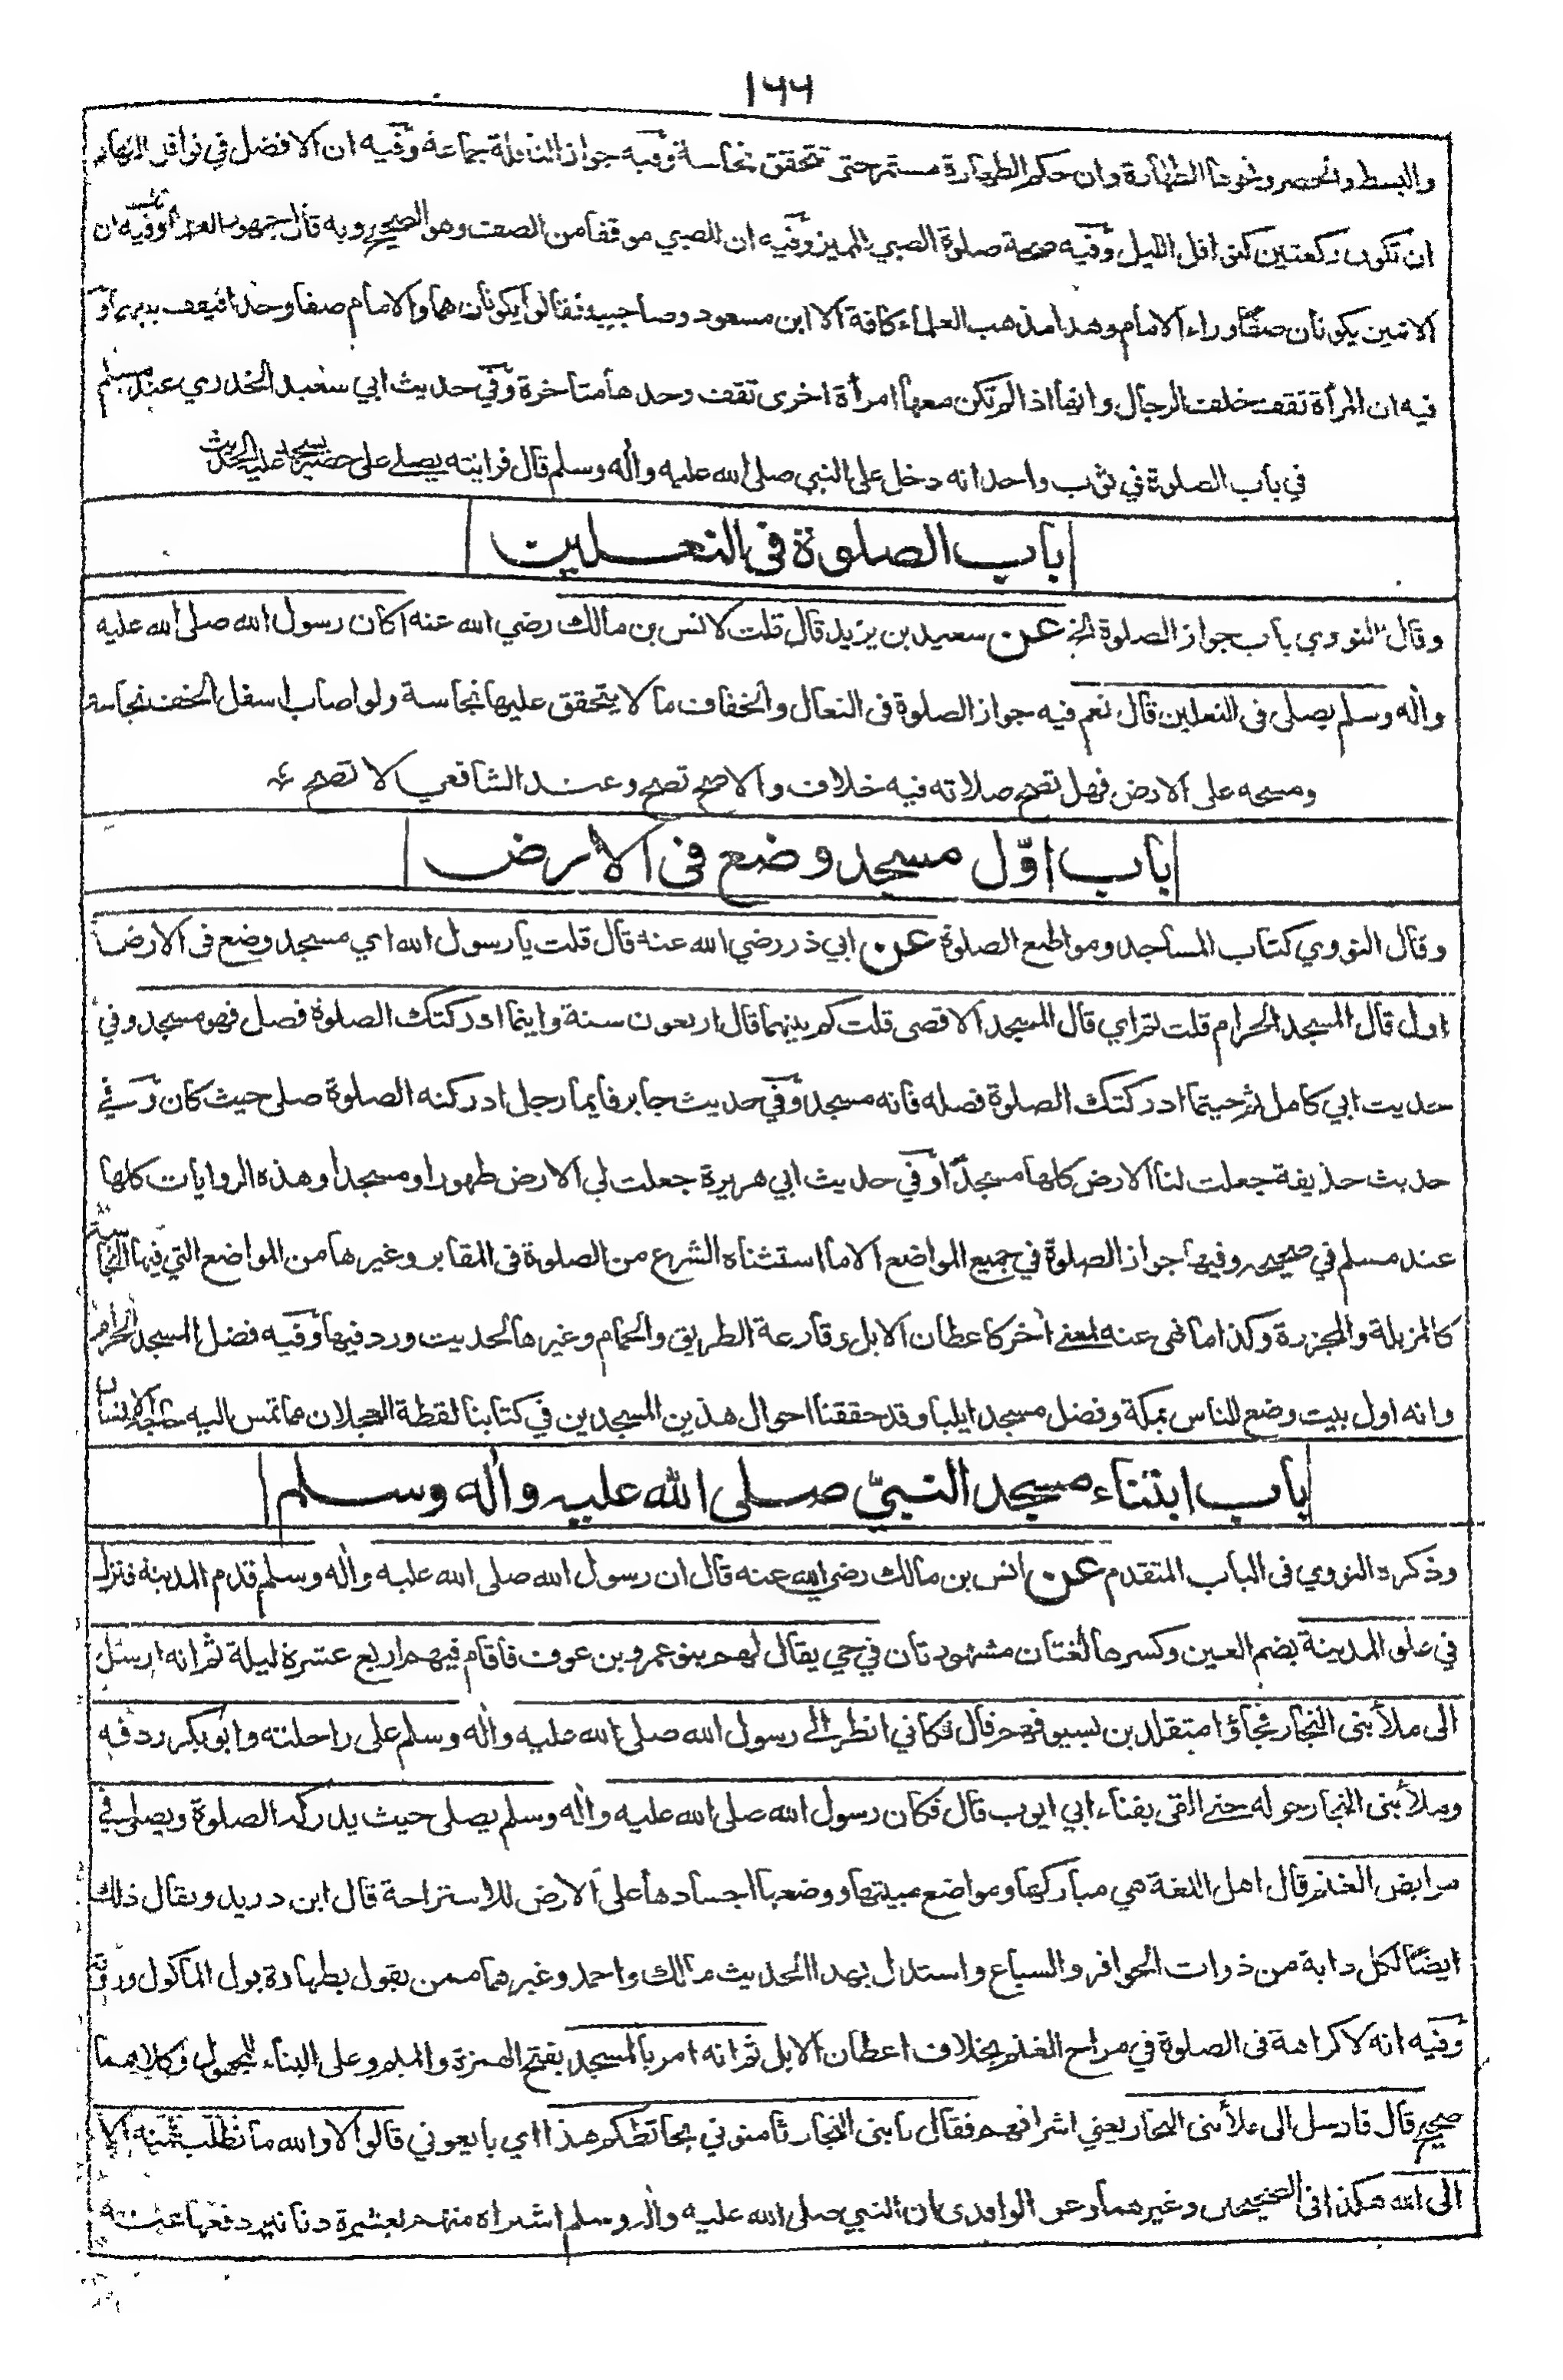 ١٦٦
والبسط والحصر ونحوها الطهارة وان حكم الطهارة مستمر حتى تتحقق نجاسة وفيه جواز النافلة جماعة وفيه ان الافضل في نوافل النهار
ان تكون ركعتين كنوافل الليل وفيه صحة صلوة الصبي المميز وفيه ان للصبي موقفا من الصف وهو الصحيح وبه قال جمهور العلماء وفيه ان
الاثنين يكونان صفا وراء الامام وهذا مذهب العلماء كافة الا ابن مسعود وصاحبيه فقالوا يكونان هما والامام صفا وحدا فيقف بينهما و
فيه ان المرأة تقف خلف الرجال وانها اذا لم تكن معها امرأة اخرى تقف وحدها متاخرة وفي حديث ابي سعيد الخدري عند مسلم
في باب الصلوة في ثوب واحد انه دخل على النبي صلى الله عليه واٰله وسلم قال فرايته يصلے على حصير يسجد عليه الحديث
باب الصلوة فى النعلين
وقال النووي باب جواز الصلوة الخ عن سعيد بن يزيد قال قلت لانس بن مالك رضي الله عنه اكان رسول الله صلى الله عليه
واٰله وسلم يصلى فى النعلين قال نعم فيه جواز الصلوة فى النعال والخفاف ما لا يتحقق عليها نجاسة ولو اصاب اسفل الخف نجاسة
ومسحه على الارض فهل تصح صلاته فيه خلاف والاصح تصح وعند الشافعي لا تصح
باب اوّل مسجد وضع فى الارض
وقال النووي كتاب المساجد ومواضع الصلوة عن ابي ذر رضي الله عنه قال قلت يا رسول الله اي مسجد وضع فى الارض
اول قال المسجد الحرام قلت ثم اي قال المسجد الاقصى قلت كم بينهما قال اربعون سنة واينما ادركتك الصلوة فصل فهو مسجد وفي
حديث ابي كامل ثم حيثما ادركتك الصلوة فصله فانه مسجد وفي حديث جابر فايما رجل ادركته الصلوة صلى حيث كان وفي
حديث حذيفة جعلت لنا الارض كلها مسجدا وفي حديث ابي هريرة جعلت لي الارض طهورا ومسجدا وهذه الروايات كلها
عند مسلم في صحيحه وفيها جواز الصلوة في جميع المواضع الا ما استثناه الشرع من الصلوة فى المقابر وغيرها من المواضع التي فيها النجاسة
كالمزبلة والمجزرة وكذا ما نهى عنه لمعنے اٰخر كاعطان الابل وقارعة الطريق والحمام وغيرها لحديث ورد فيها وفيه فضل المسجد الحرام
وانه اول بيت وضع للناس بمكة وفضل مسجد ايليا وقد حققنا احوال هذين المسجدين في كتابنا لقطة العجلان مما تمس اليه حاجة الانسان
باب ابتناء مسجد النبيّ صلى الله عليه واٰله وسلم
وذكره النووي فى الباب المتقدم عن انس بن مالك رضي الله عنه قال ان رسول الله صلى الله عليه واٰله وسلم قدم المدينة فنزل
في علو المدينة بضم العين وكسرها لغتان مشهورتان في حي يقال لهم بنو عمرو بن عوف فاقام فيهم اربع عشرة ليلة ثم انه ارسل
الى ملأ بنى النجار فجاؤا متقلدين بسيوفهم قال فكاني انظر الے رسول الله صلى الله عليه واٰله وسلم على راحلته وابو بكر ردفه
وملأ بنى النجار حوله حتے القى بفناء ابي ايوب قال فكان رسول الله صلى الله عليه واٰله وسلم يصلى حيث يدركه الصلوة ويصلى في
مرابض الغنم قال اهل اللغة هي مباركها ومواضع مبيتها ووضعها اجسادها على الارض للاستراحة قال ابن دريد ويقال ذلك
ايضا لكل دابة من ذوات الحوافر والسباع واستدل بهذا الحديث مالك واحمد وغيرهما ممن يقول بطهارة بول الماكول وروثه
وفيه انه لا كراهة فى الصلوة في مراح الغنم بخلاف اعطان الابل ثم انه امر بالمسجد بفتح الهمزة والميم وعلى البناء للمجهول وكلاهما
صحيح قال فارسل الى ملأ بنى النجار يعني اشرافهم فقال يا بنى النجار ثامنوني بحائطكم هذا اي بايعوني قالوا لا والله ما نطلب ثمنه الا
الى الله هكذا فى الصحيحين وغيرهما وعن الواقدى ان النبي صلى الله عليه واٰله وسلم اشتراه منهم بعشرة دنانير دفعها عنه